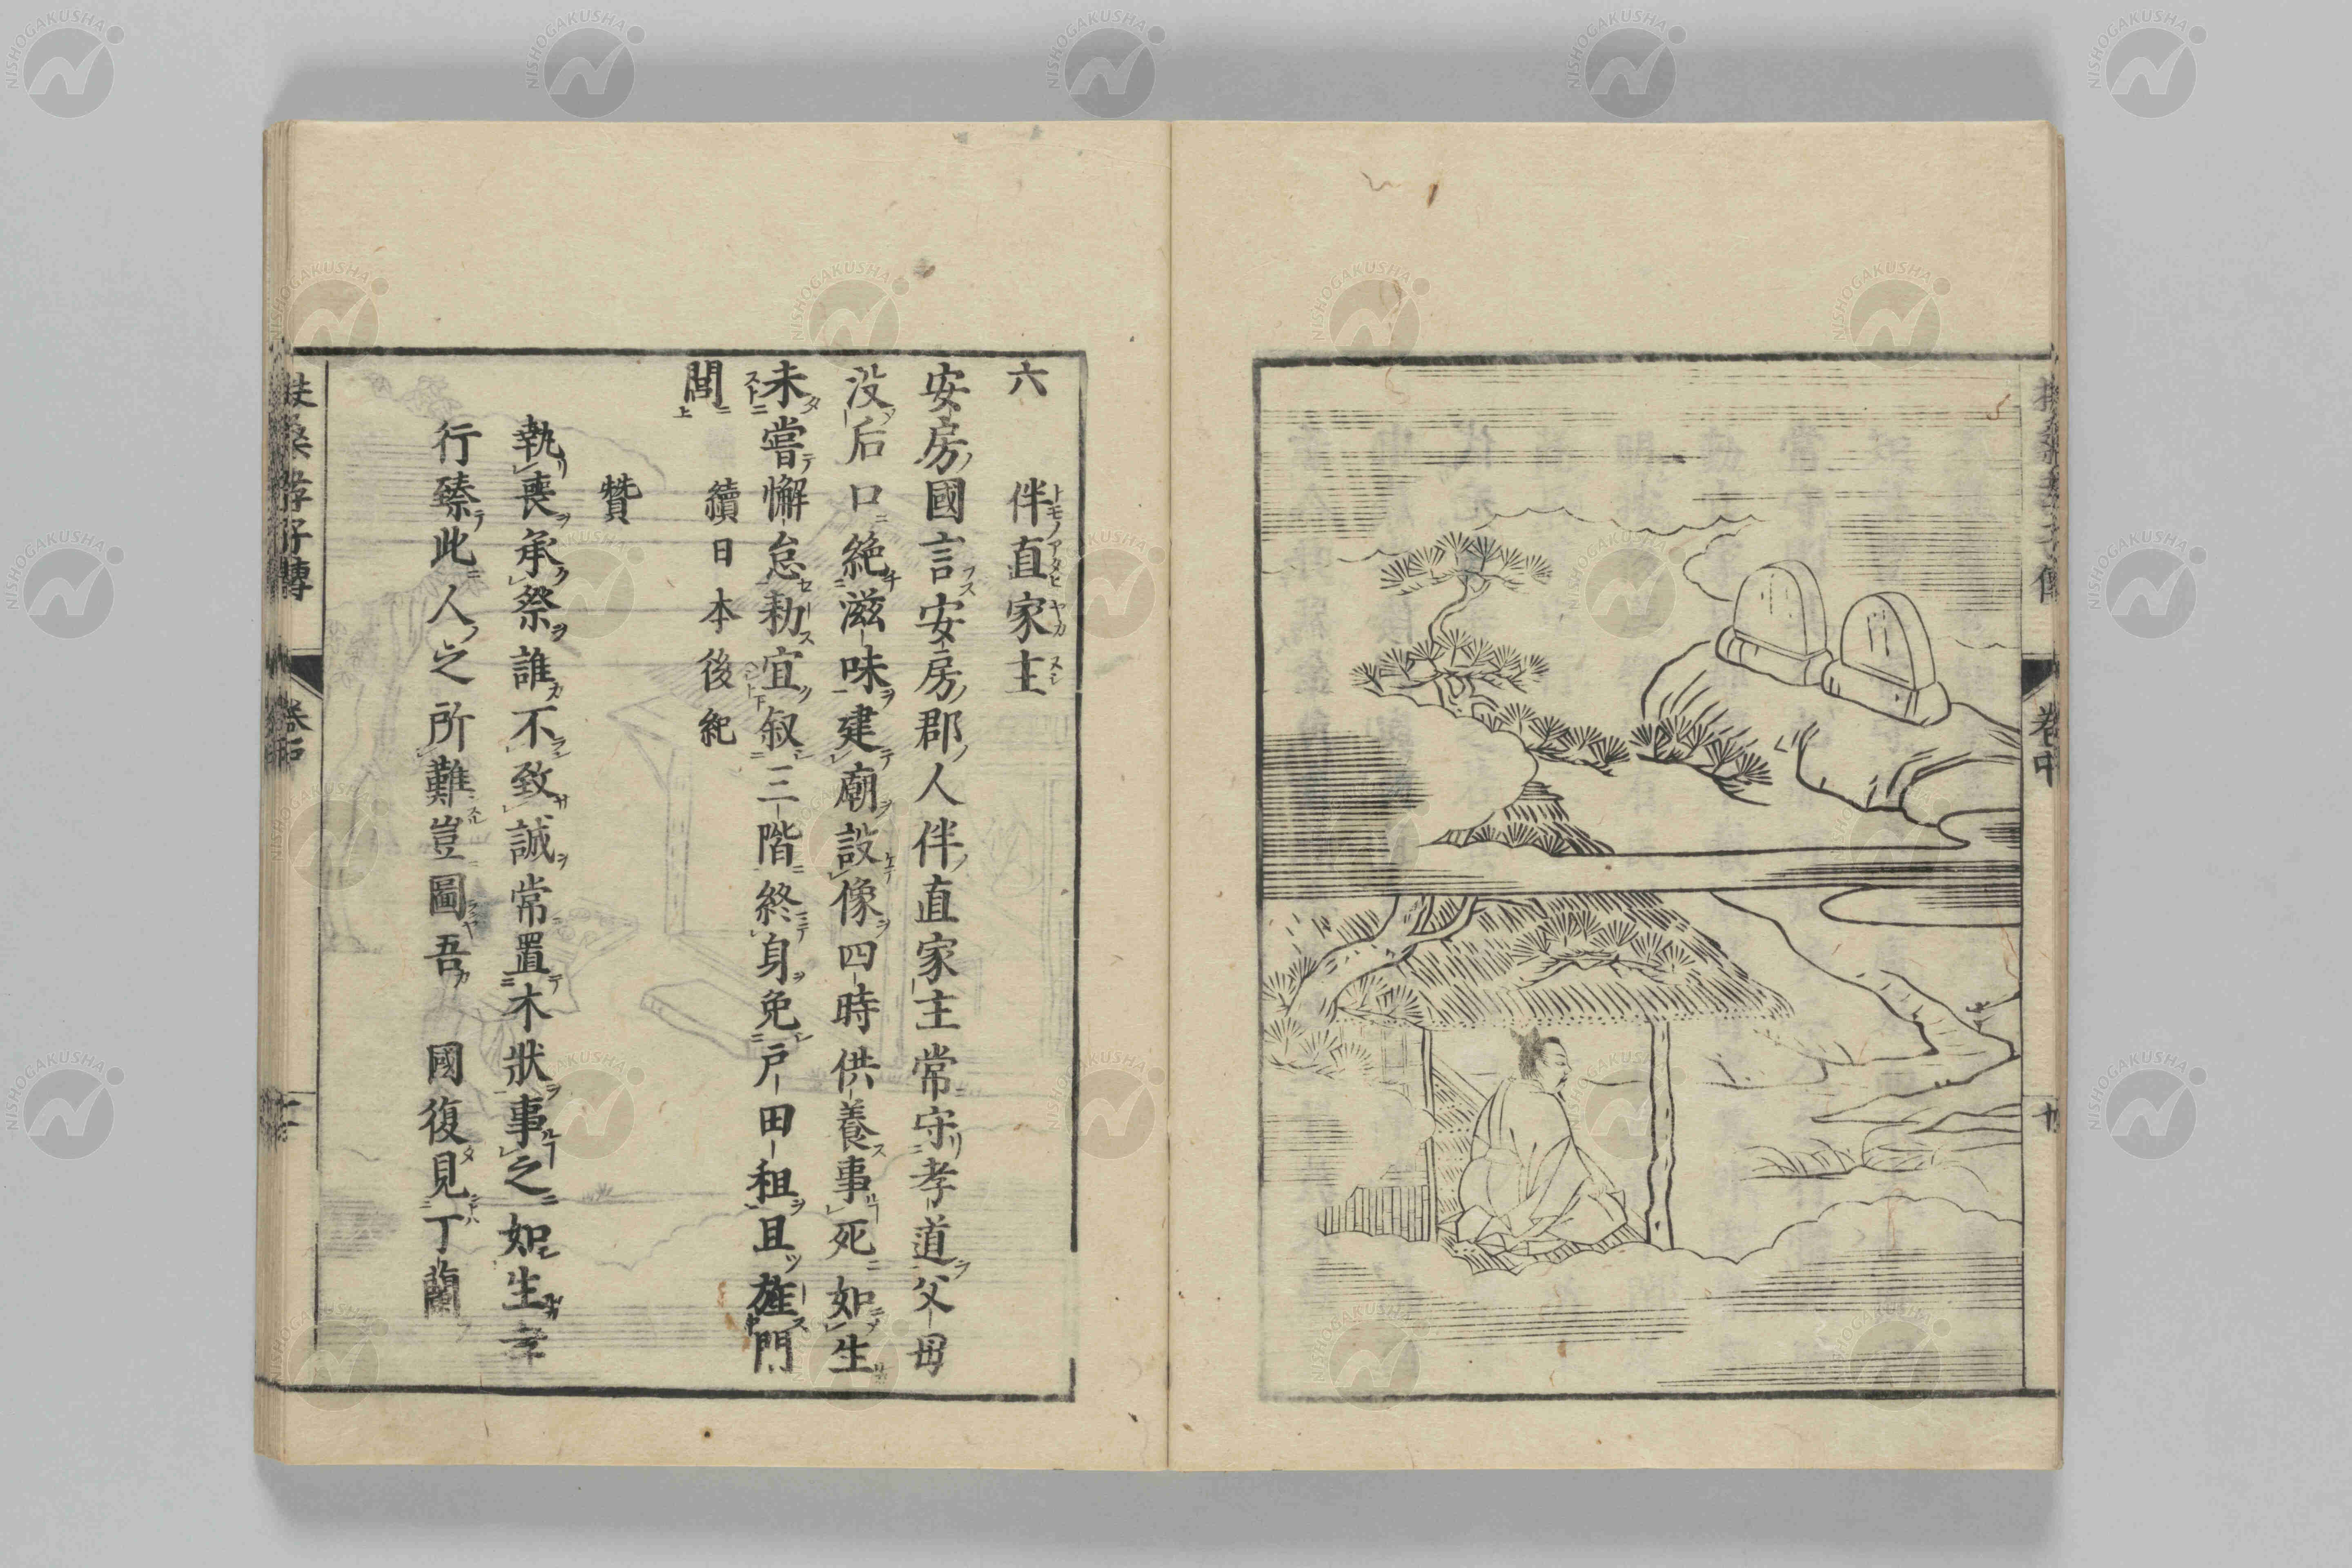 六
伴直家主
トモノアタヒヤカヌシ
安房國言安房郡人伴直家主常守孝道父母
没后口絶滋味建廟設像四時供養事死如生
未嘗懈怠勅宜叙三階終身免戸田租且旌門
閭
續日本後紀
賛
執喪承祭誰不致誠常置木状事之如生幸
行臻此人之所難豈圖吾 國復見丁蘭
扶桑孝子傳
卷中
NISHOGAKUSHA